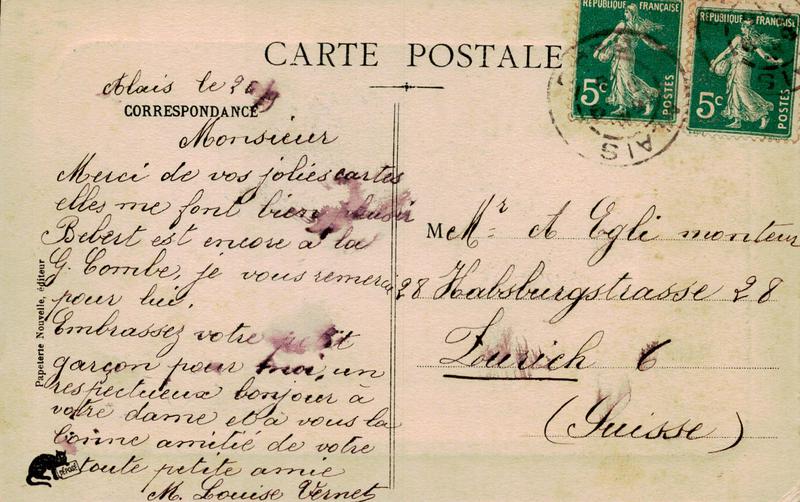 CARTE POSTALE
RÉPUBLIQUE FRANÇAISE
5c
POSTES
RÉPUBLIQUE FRANÇAISE
5c
POSTES
AIS
Alais le
CORRESPONDANCE
Monsieur
Merci de vos jolies cartes
elles me font bien plaisir
Bebert est encore à la
G. Combe, je vous remercie
pour lui.
Embrassez votre petit
garçon pour moi, un
respectueux bonjour à
votre dame et à vous la
bonne amitié de votre
toute petite amie
M. Louise Vernet
M Mr A Egli monteur
28 Habsburgstrasse 28
Zurich 6
(Suisse)
Papeterie Nouvelle, éditeur
DÉPOSÉ